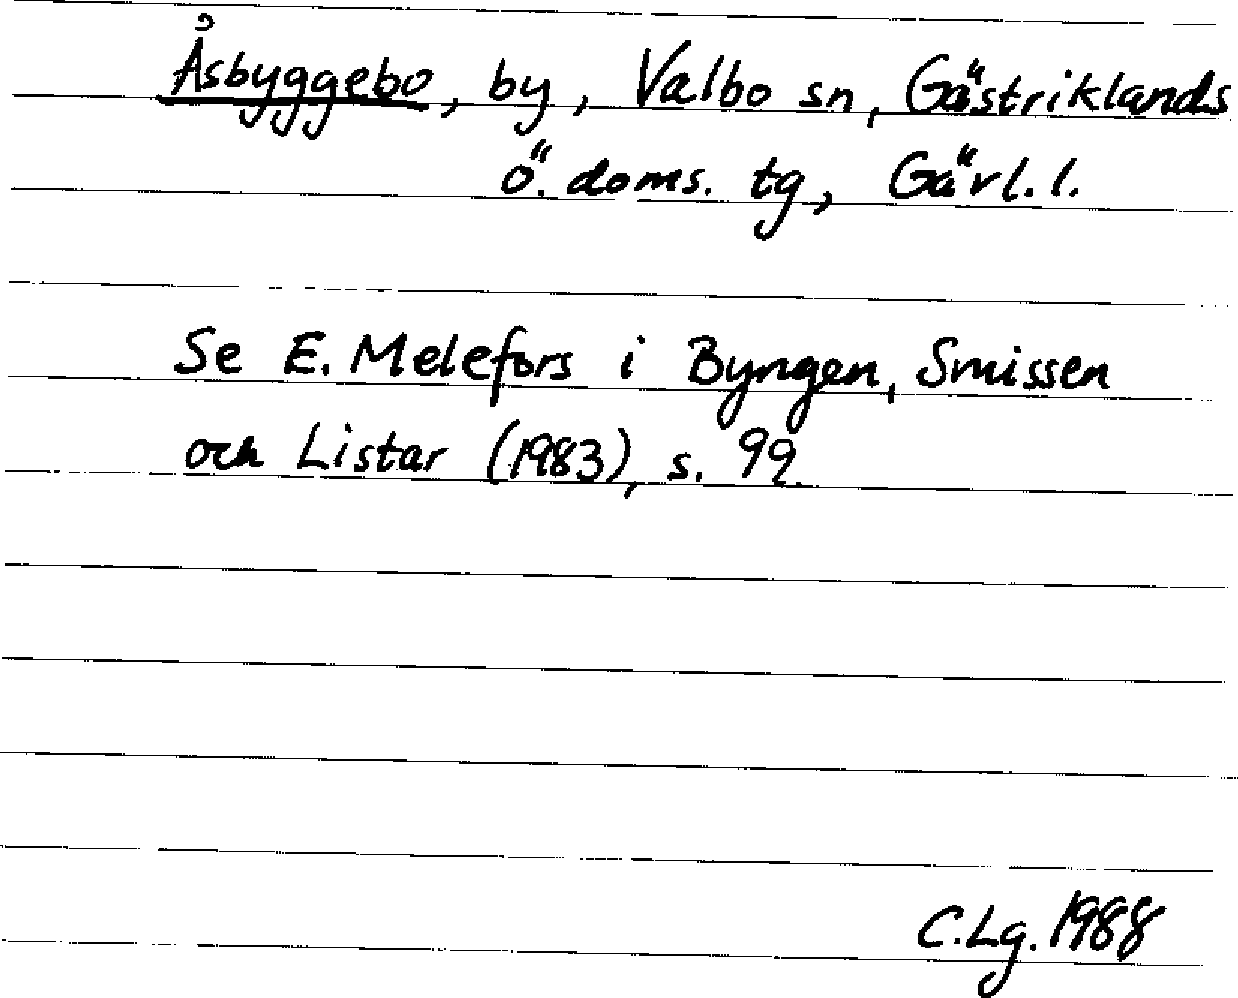 Åsbyggebo, by, Valbo sn, Gästriklands
ö. doms. tg, Gävl. l.
Se E. Melefors i Byngen, Smissen
och Listar (1983), s. 99.
C.Lg. 1988